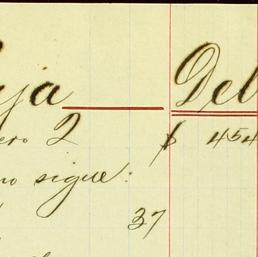 ja Deb
ero 2 $ 454
no sigue:
37